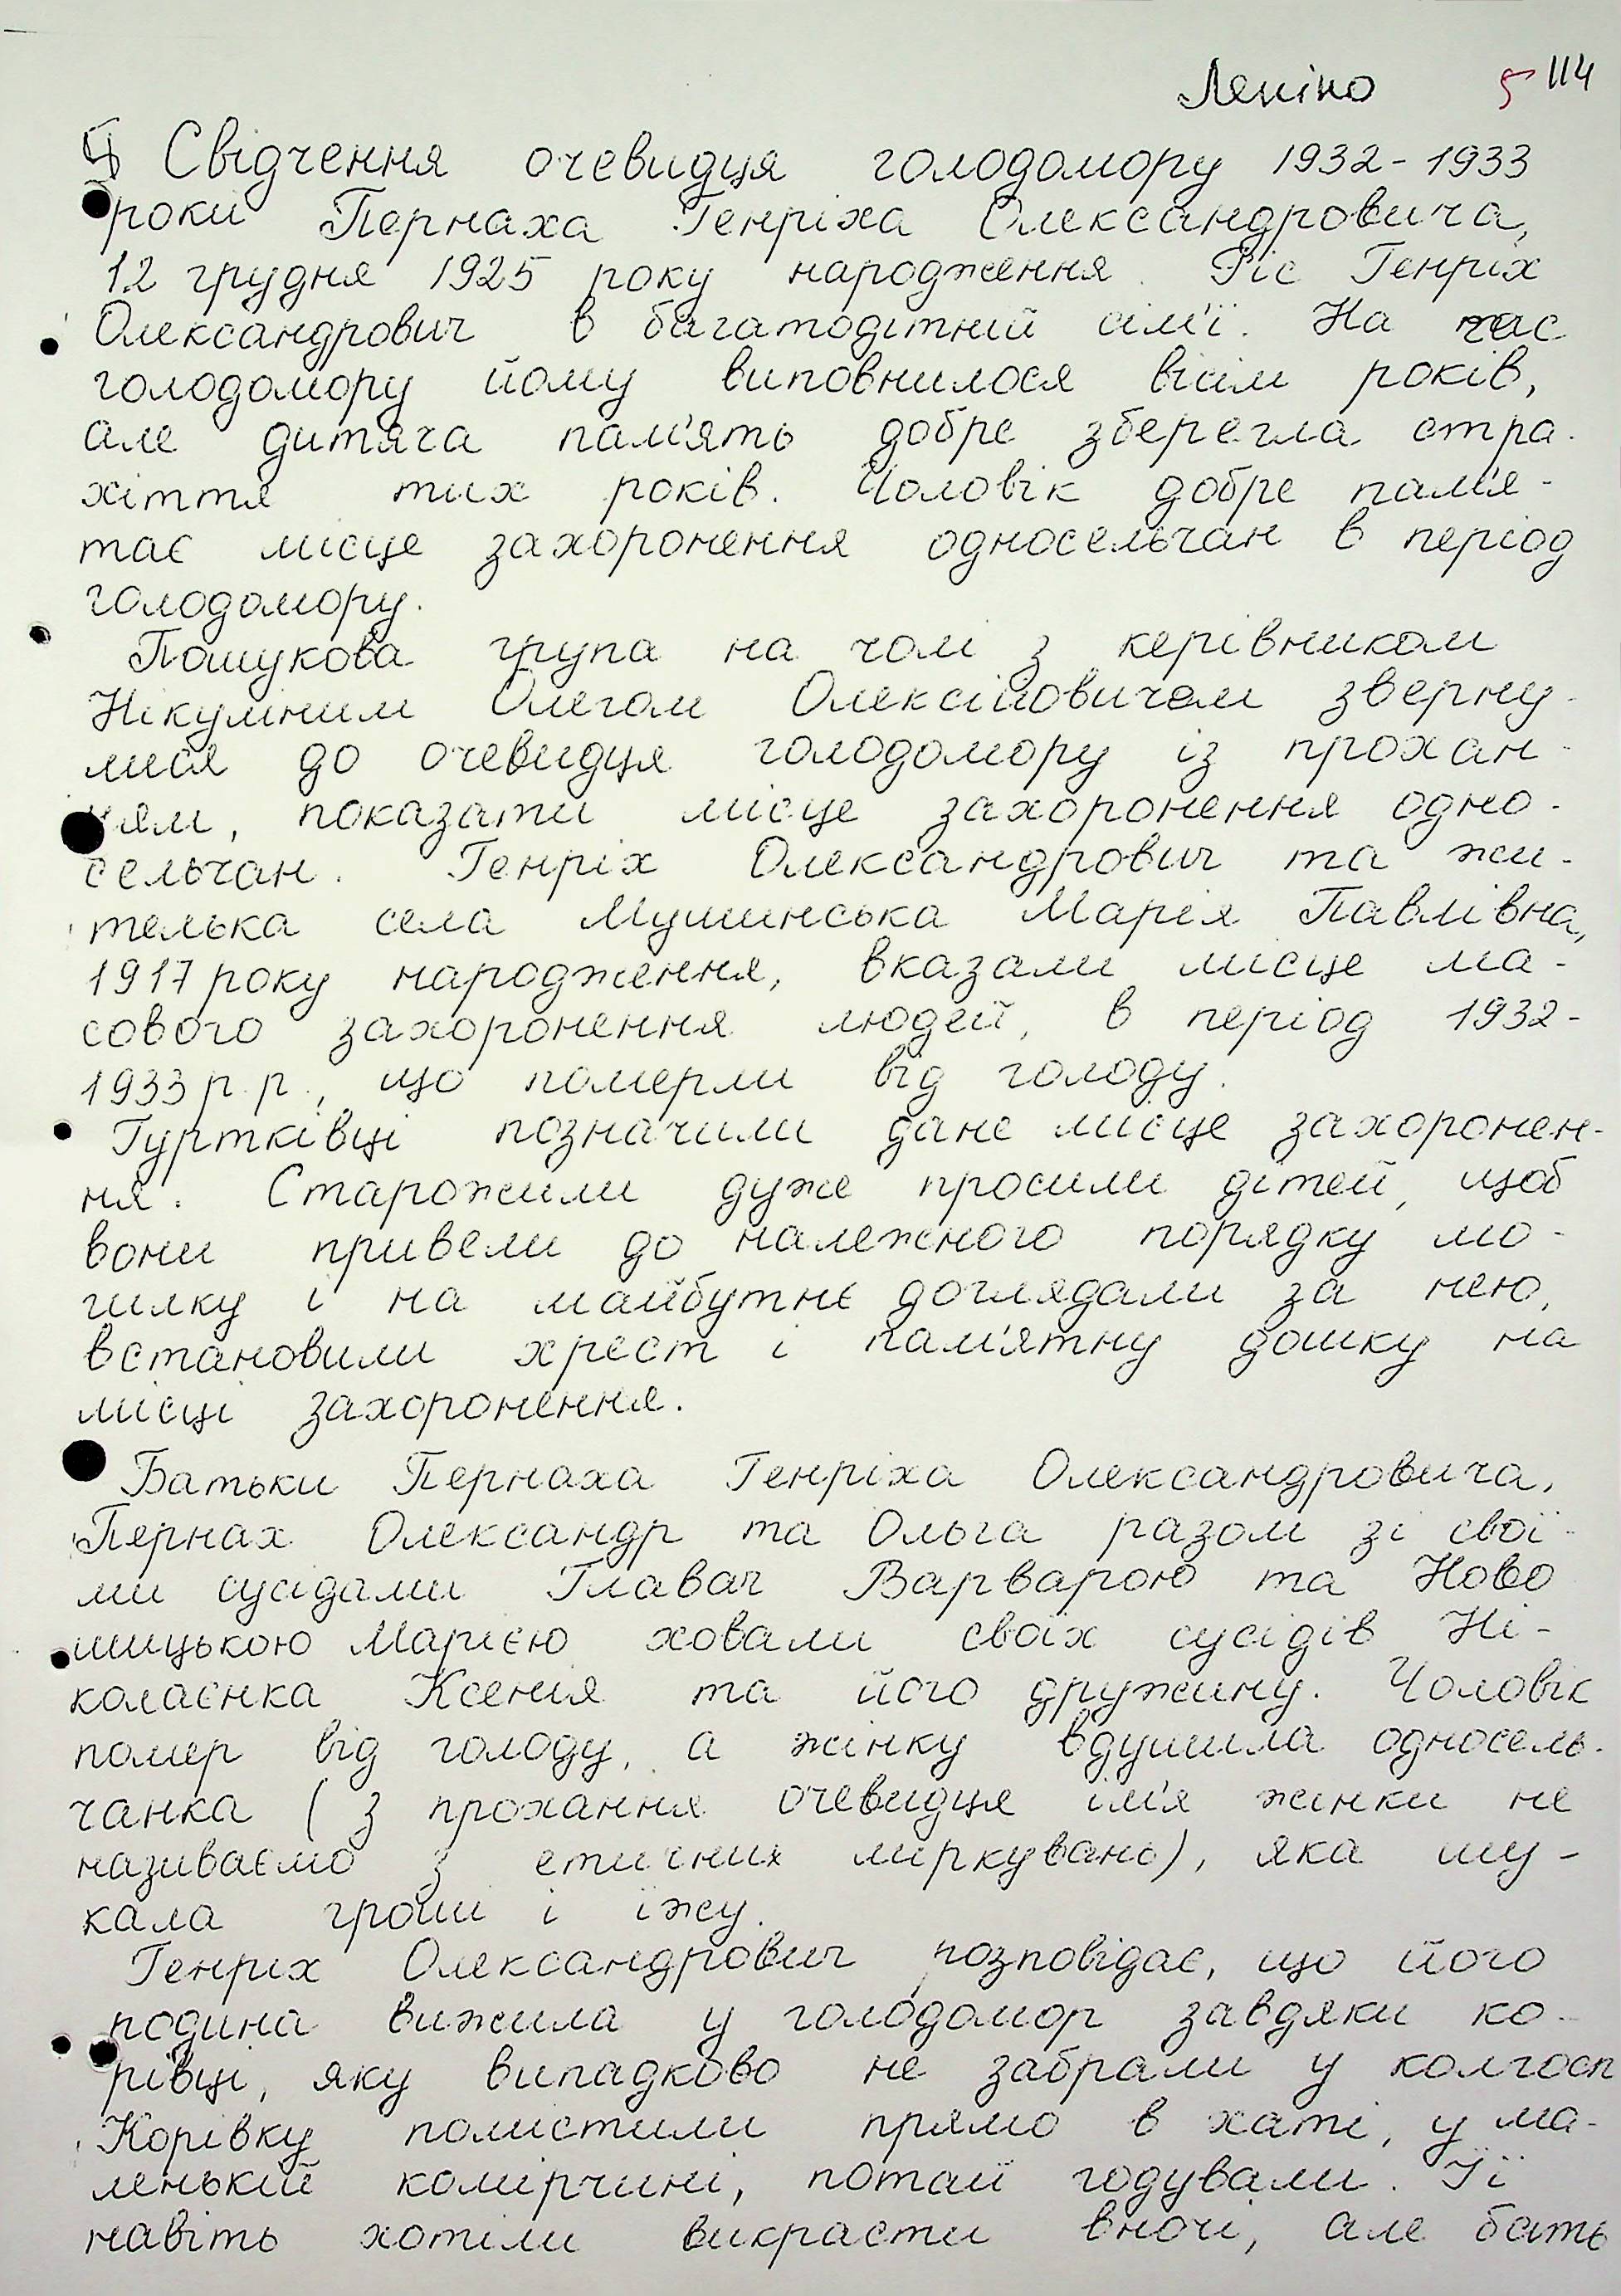 Леніно 5 114
Свідчення очевидця голодомору 1932-1933
роки Пернаха Генріха Олександровича,
12 грудня 1925 року народження. Ріс Генріх
Олександрович в багатодітній сім'ї. На час
голодомору йому виповнилося вісім років,
але дитяча пам'ять добре зберегла стра-
хіття тих років. Чоловік добре пам'я-
тає місце захоронення односельчан в період
голодомору.
Пошукова група на чолі з керівником
Нікуліним Олегом Олексійовичем зверну-
лися до очевидця голодомору із прохан-
ням, показати місце захоронення одно-
сельчан. Генріх Олександрович та жи-
телька села Мушинська Марія Павлівна,
1917 року народження, вказали місце ма-
сового захоронення людей, в період 1932-
1933 р.р., що померли від голоду.
Гуртківці позначили дане місце захоронен-
ня. Старожили дуже просили дітей, щоб
вони привели до належного порядку мо-
гилку і на майбутнє доглядали за нею,
встановили хрест і пам'ятну дошку на
місці захоронення.
Батьки Пернаха Генріха Олександровича,
Пернах Олександр та Ольга разом зі свої-
ми сусідами Главач Варварою та Ново
шицькою Марією ховали своїх сусідів Ні-
колаєнка Ксенія та його дружину. Чоловік
помер від голоду, а жінку вдушила односель-
чанка (з прохання очевидця ім'я жінки не
називаємо з етичних міркувань), яка шу-
кала гроші і їжу.
Генріх Олександрович розповідає, що його
родина вижила у голодомор завдяки ко-
рівці, яку випадково не забрали у колгосп
Корівку помістили прямо в хаті, у ма-
ленькій комірчині, потай годували. Її
навіть хотіли викрасти вночі, але бать